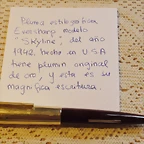 Pluma estilográfica
Eversharp modelo
"Skyline", del año
1942, hecho en USA
tiene plumín original
de oro, y esta es su
magnífica escritura.